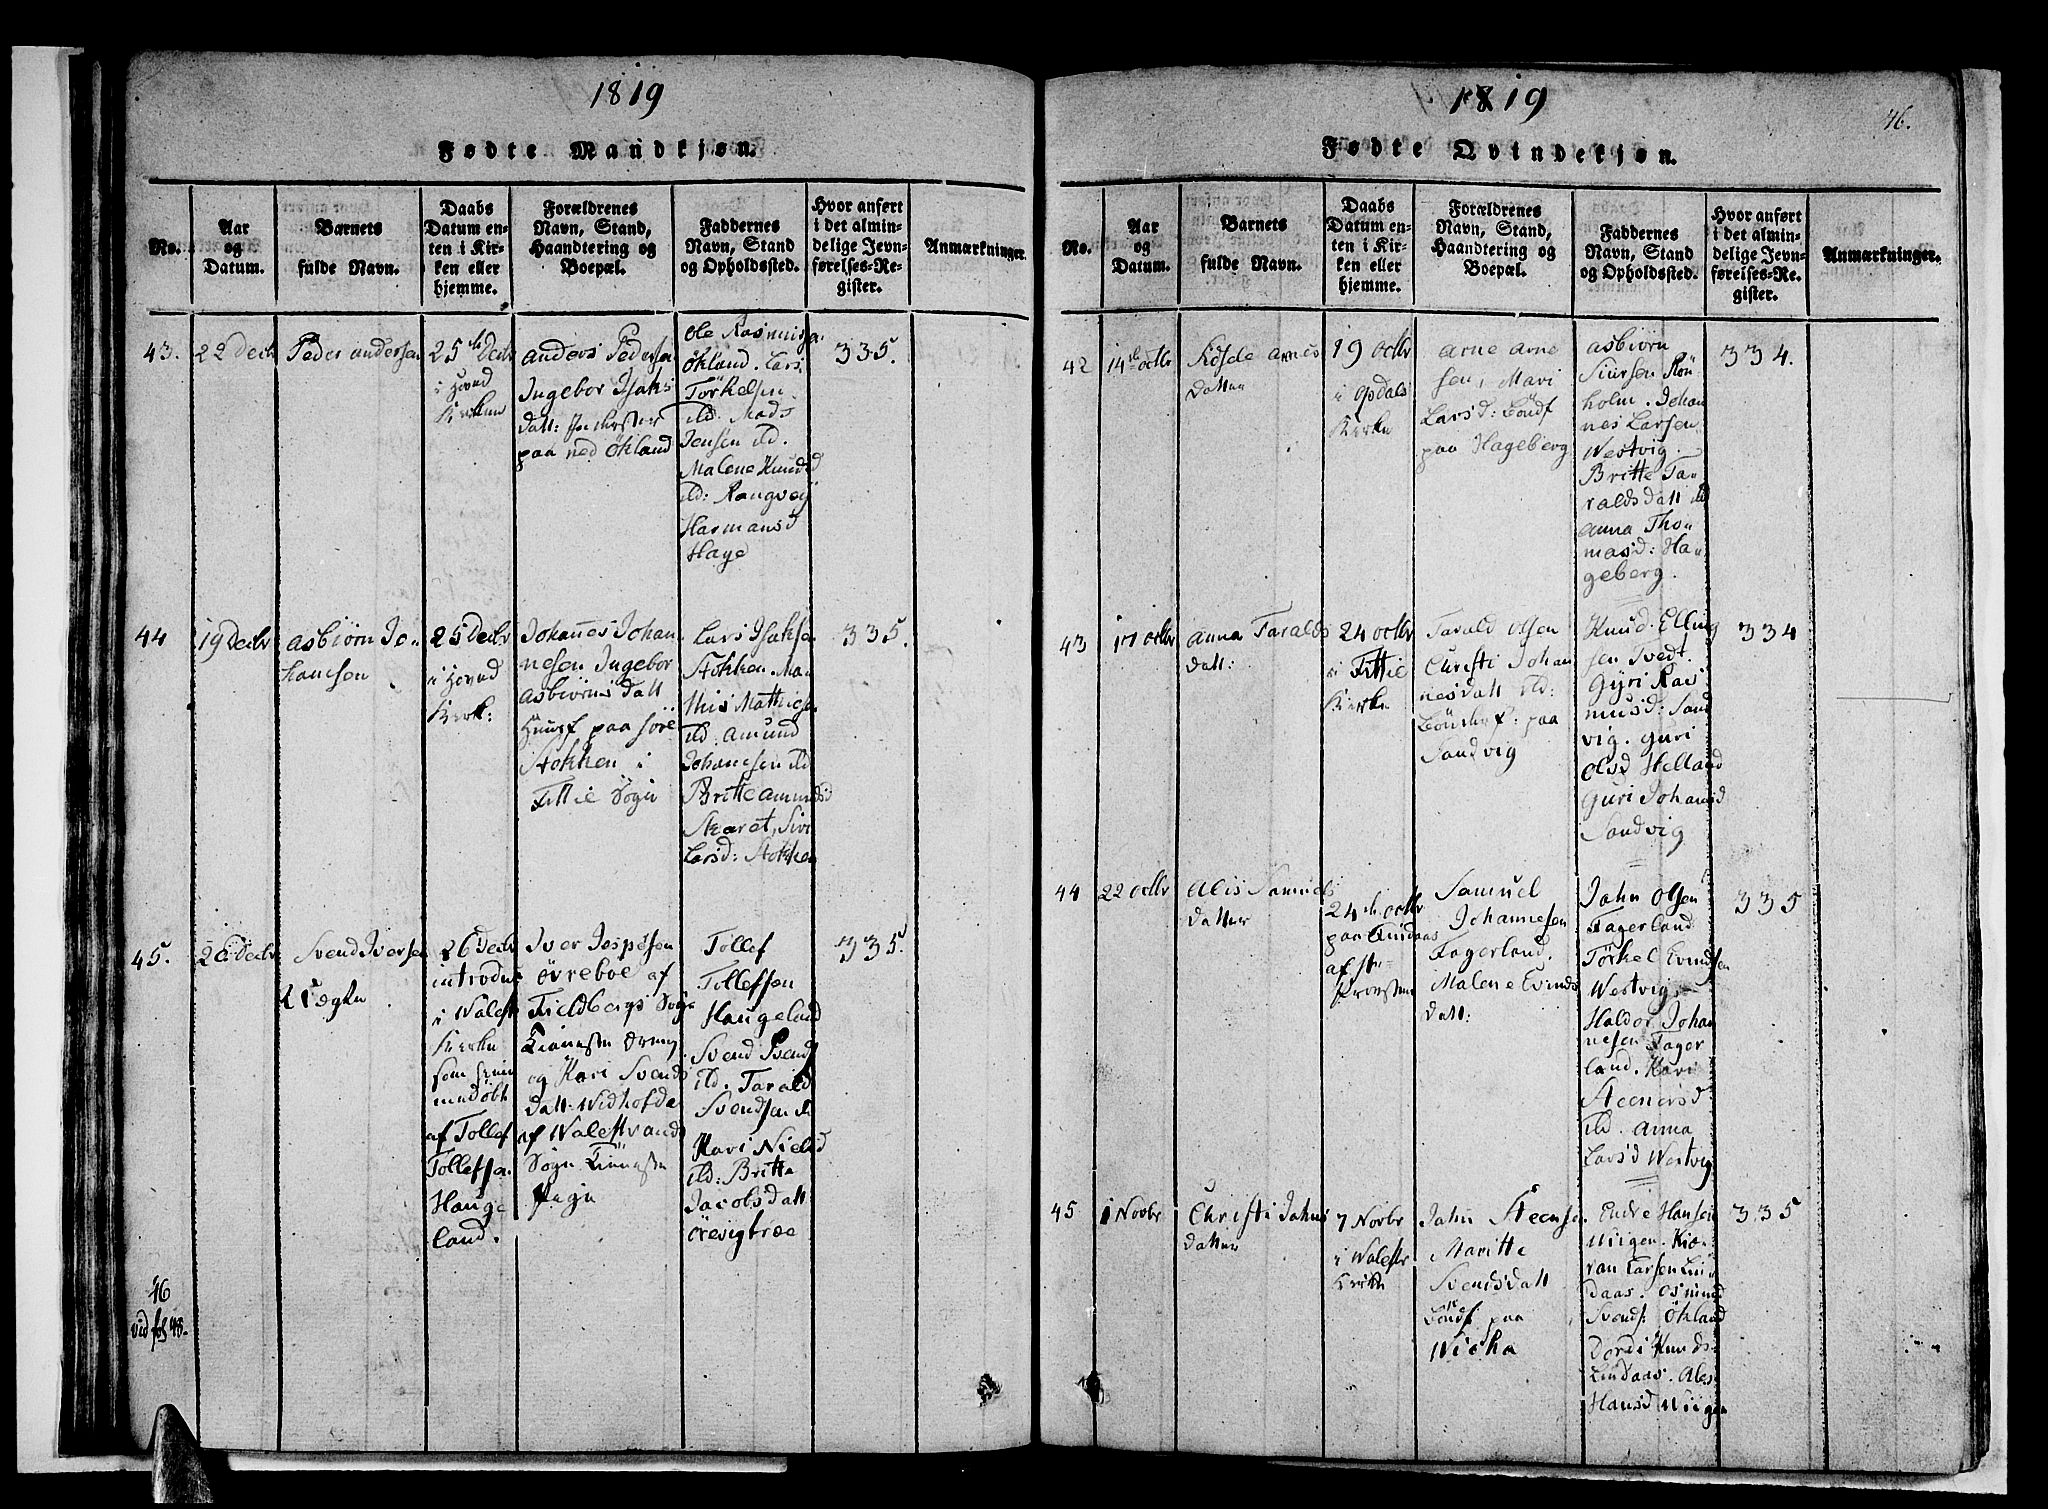 1819
Fødte Mandkjøn.
No.
Aar
og
Datum.
Barnets
fulde Navn.
Daabs
Datum en-
ten i Kir-
ken eller
hjemme.
Forældrenes
Navn, Stand,
Haandtering og
Boepæl.
Faddernes
Navn, Stand
og Opholdssted.
Hvor anført
i det almin-
delige Jevn-
førelses-Re-
gister.
Anmærkninger
43.
22 Decbr
Peder andersen
25de Decbr
i Hoved
Kirken
anders Peders.
Ingebor Isaks
datt:
paa ned Økland
Ole Rasmuss.
Økland. Lars
Törkelsen
ild. Mads
Jensen ild.
Malene Knudsd
ild: Rangveg
Harmansd
Hage
335.
44
19 Decbr
asbiørn Jo-
hansen
25 Decbr
i Hoved
Kirk:
Johañes Johan
nesen Ingebor
asbiörns datt
Huusf paa söre
Stokken i
Fittie Sogn
Lars Isaks.
Stokken. Ma-
this Mathies.
ild. Amund
Johannesen ild
Britte amundsd
Skaret, Siri
Larsd: Stokken
335.
45.
20 Decbr
Svend Iversen
Uægte
26 Decbr
introdus
i Walestr
Kirke
som hiem-
medöbt
af Tollef
Tollefsen
Hauge
land.
Iver Jespersen
övreboe af
Fieldbergs Sogn
og Kari Svends
datt: Widhofda
af Walestrands
Sogn
Tollef
Tollefsen
Haugeland
Svend Svends
ild. Tarald
Svendsen ild
Kari Nielsd
ild: Britta
Jacobsdatt
örevigbræ
335.
46
vid fol 48.
1819
46.
Fødte Qvindekjøn.
No.
Aar
og
Datum.
Barnets
fulde Navn.
Daabs
Datum en-
ten i Kir-
ken eller
hjemme.
Forældrenes
Navn, Stand,
Haandtering og
Boepæl.
Faddernes
Navn, Stand
og Opholdssted.
Hvor anført
i det almin-
delige Jevn-
førelses-Re-
gister.
Anmærkninger.
42
14de octbr
arnes
datter
19 octbr
i Opdals
Kirke
arne arne
sen, Mari
Larsd: Böndf
paa Hageberg
asbiörn
Siursen Rön
holm. Johan
nes Larsen
Westvig.
Britte Ta-
raldsdatt ild
anna Tho-
masd: Ha-
geberg.
334.
43
17 octbr
anna Taralds
datt:
24 octbr
i Fittie
Kirke
Tarald olsen
Christi Johan
nesdatt ild:
paa
Sandvig
Knud. Elling
sen Tvedt.
Gyri Ras
musd: Sand
vig. guri
olsd Helland
Guri Johansd
Sandvig
334
44
22 octbr
Alis Samuels
datter
24de octbr
paa Lindaas
af
Provsten
Samuel
Johannesen
Fagerland.
Malene Evinds
datt:
John Olsen
Fagerland
Törkel Evindsen
Westvig
Haldor Johan
nesen Fager
land. Kari
Steenersd
ild. anna
Larsd Westvig
335
45
1 Novbr
Christi Johns
datter
7 Novbr
i Walestr
Kirke
John Steens.
Maritte
Svendsdatt
Böndf paa
Wicka
Endre Hansen
Wiigen. Kiæ-
ran Larsen Lin
daas. Osmund
Svends: Ökland
Dordi Knuds
Lindaas. Ales
Hansd Wiigen
335